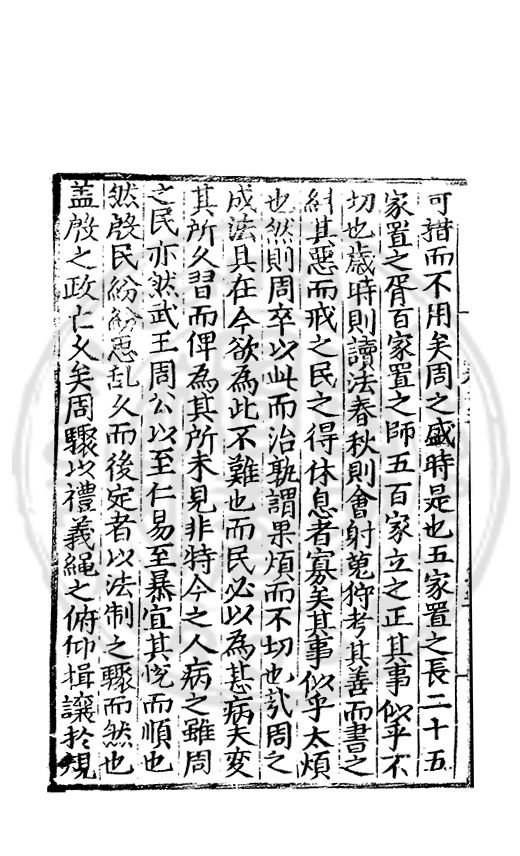 可措而不用矣周之盛時是也五家置之長二十五
家置之胥百家置之師五百家立之正其事似乎不
切也歲時則讀法春秋則會射蒐狩考其善而書之
糾其惡而戒之民之得休息者寡矣其事似乎太煩
也然則周卒以此而治孰謂果煩而不切也㢤周之
成法具在今欲為此不難也而民必以為甚病夫变
其所久習而俾為其所未見非特今之人病之雖周
之民亦然武王周公以至仁易至暴宜其悅而順也
然殷民紛紛思乱久而後定者以法制之驟而然也
盖殷之政亡乆矣周驟以禮義繩之俯仰揖讓於規